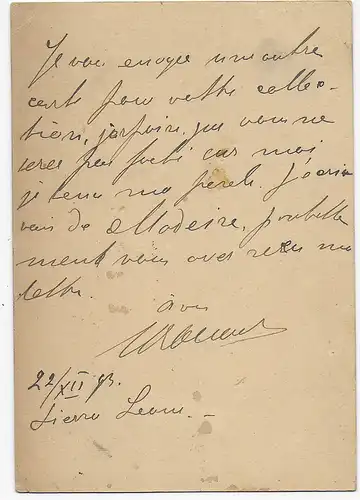 Je vous envoye une autre
carte pour votre collec-
tion, j'espère que vous ne
serez pas faché car moi
je tenu ma parole. J'écri-
vais de Madeire, probable
ment vous avez reçu ma
lettre.
à vous
22/XII 93.
Sierra Leone. -